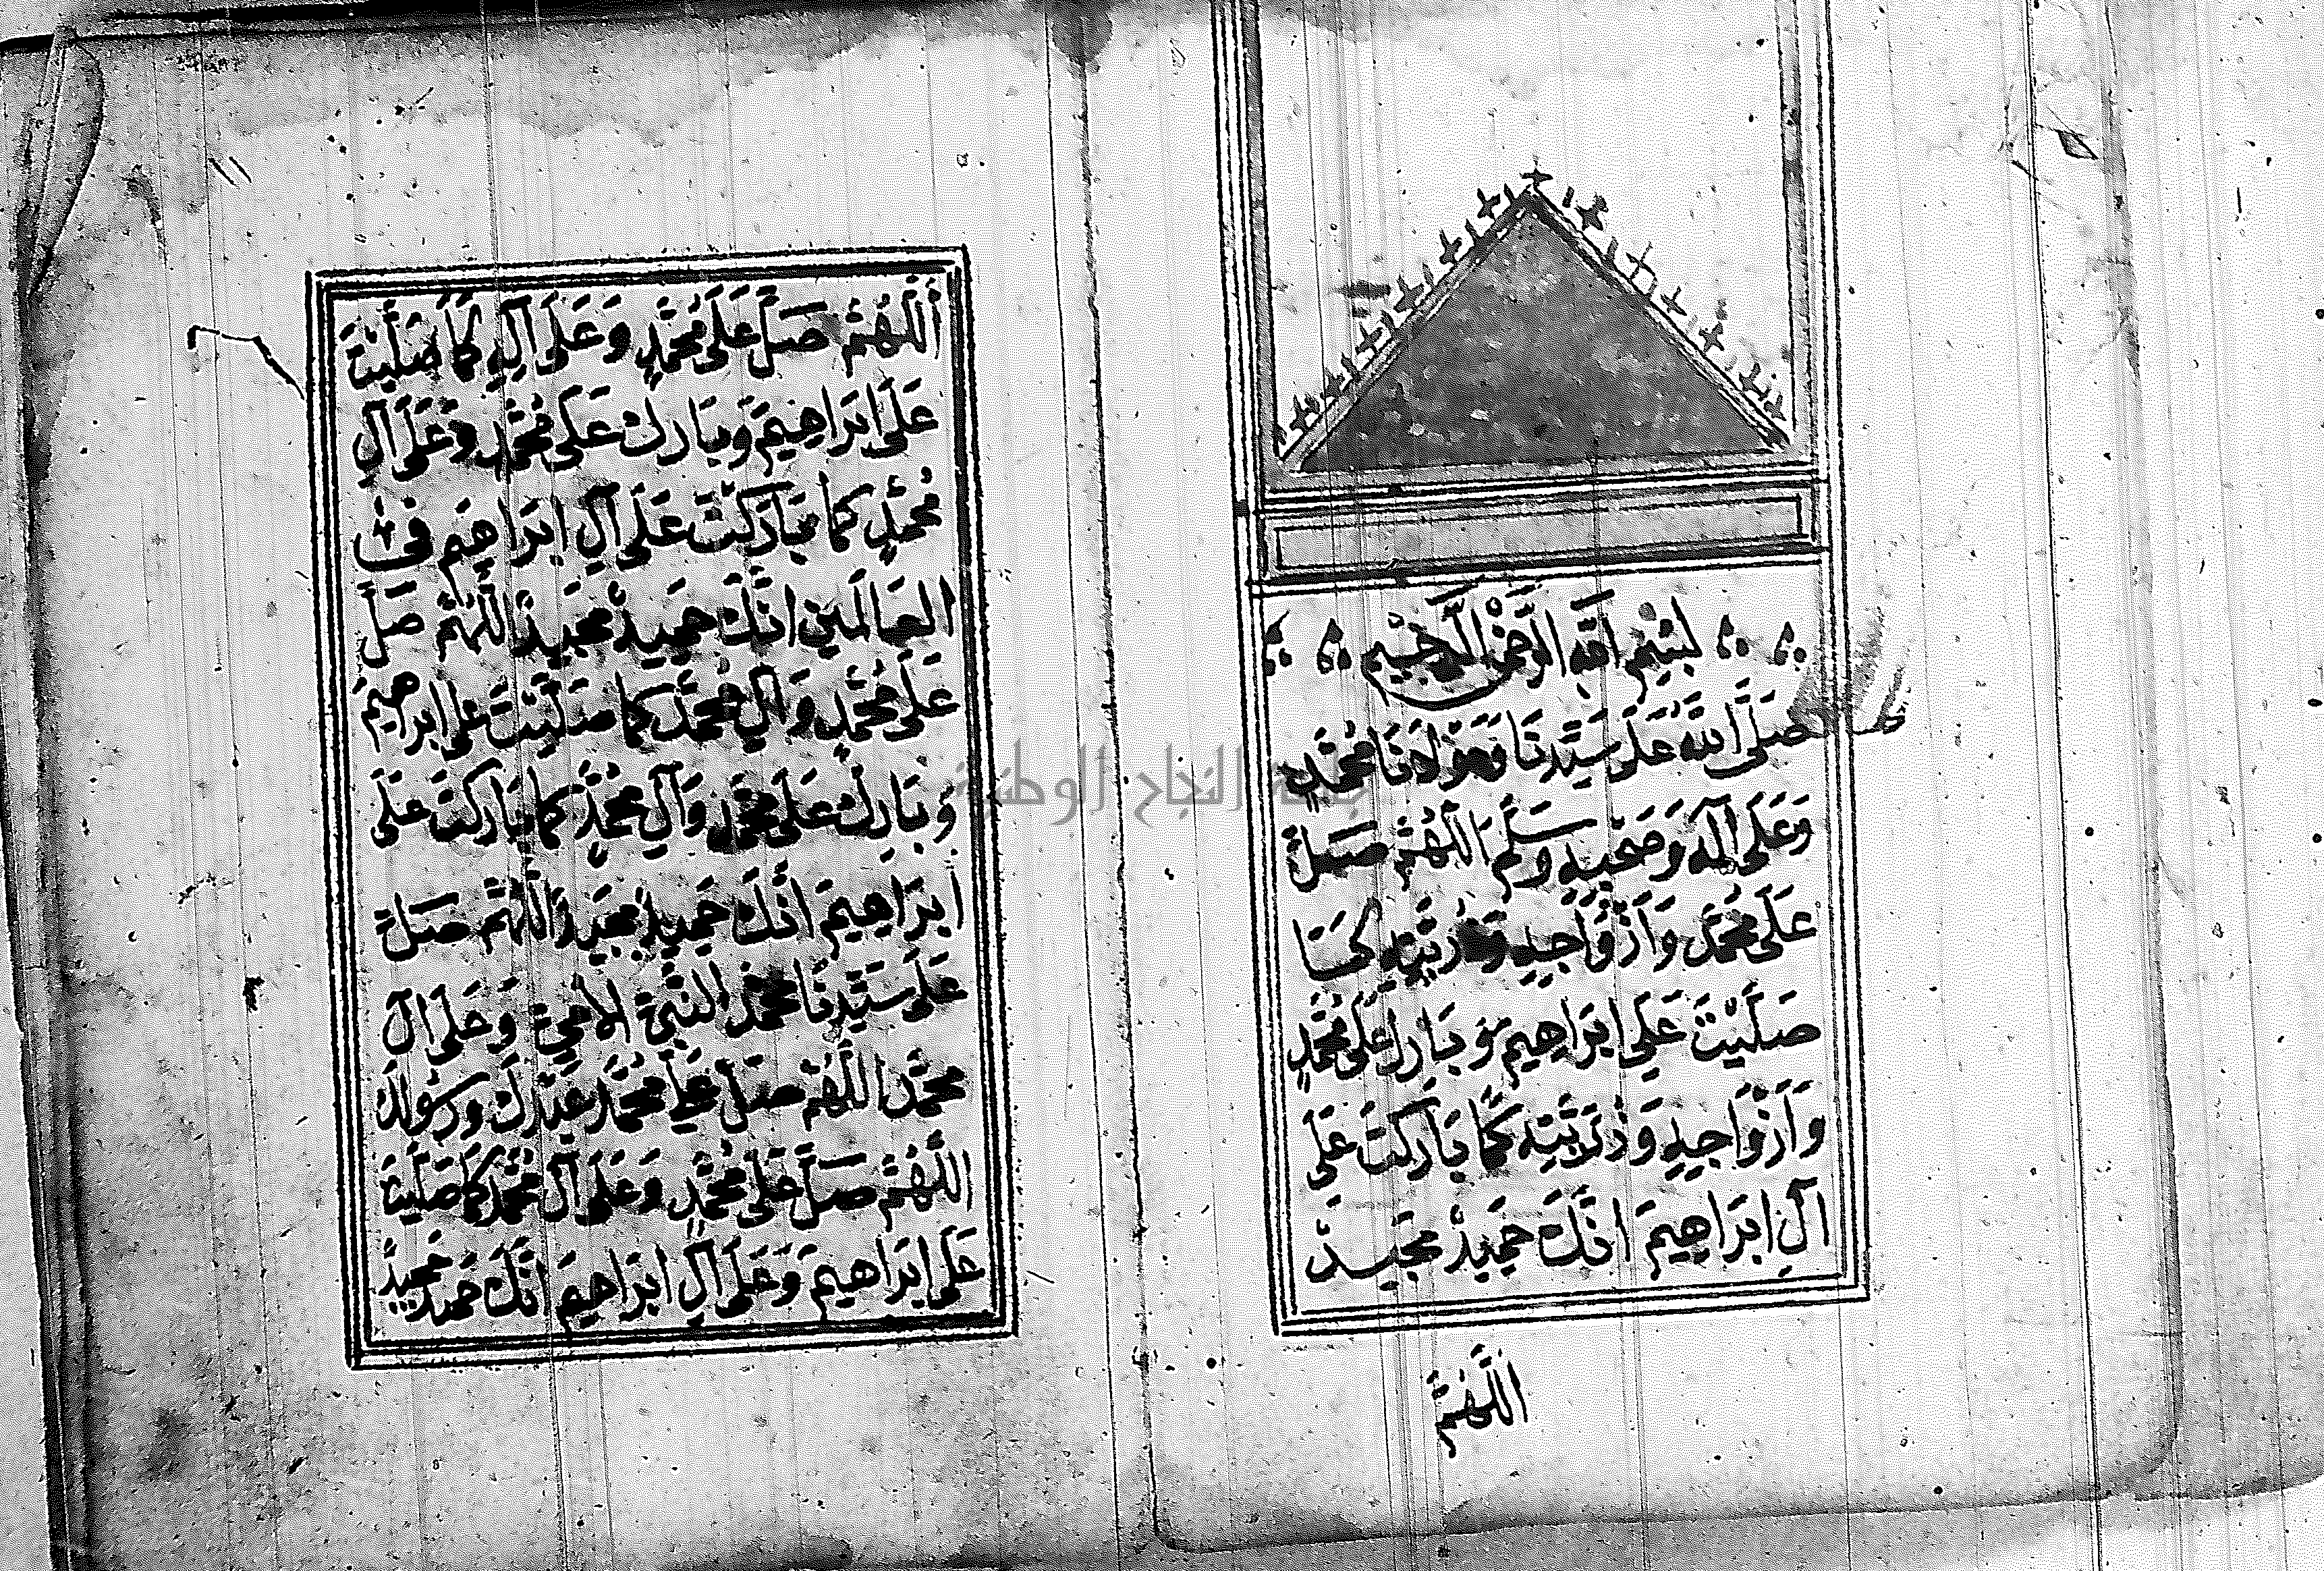 بِسْمِ اللهِ الرَّحْمٰنِ الرَّحِيْمِ
صَلَّى اللهُ عَلَى سَيِّدِنَا وَمَوْلَانَا مُحَمَّدٍ
وَعَلَى آلِهِ وَصَحْبِهِ وَسَلَّمَ اَللّٰهُمَّ صَلِّ
عَلَى مُحَمَّدٍ وَاَزْوَاجِهِ وَذُرِّيَّتِهِ كَمَا
صَلَّيْتَ عَلَى اِبْرَاهِيمَ وَبَارِكْ عَلَى مُحَمَّدٍ
وَاَزْوَاجِهِ وَذُرِّيَّتِهِ كَمَا بَارَكْتَ عَلَى
آلِ اِبْرَاهِيمَ اِنَّكَ حَمِيدٌ مَجِيدٌ
اَللّٰهُمَّ
اَللّٰهُمَّ صَلِّ عَلَى مُحَمَّدٍ وَعَلَى آلِهِ كَمَا صَلَّيْتَ
عَلَى اِبْرَاهِيمَ وَبَارِكْ عَلَى مُحَمَّدٍ وَعَلَى آلِ
مُحَمَّدٍ كَمَا بَارَكْتَ عَلَى آلِ اِبْرَاهِيمَ فِي
الْعَالَمِينَ اِنَّكَ حَمِيدٌ مَجِيدٌ اَللّٰهُمَّ صَلِّ
عَلَى مُحَمَّدٍ وَآلِ مُحَمَّدٍ كَمَا صَلَّيْتَ عَلَى اِبْرَاهِيمَ
وَبَارِكْ عَلَى مُحَمَّدٍ وَآلِ مُحَمَّدٍ كَمَا بَارَكْتَ عَلَى
اِبْرَاهِيمَ اِنَّكَ حَمِيدٌ مَجِيدٌ اَللّٰهُمَّ صَلِّ
عَلَى سَيِّدِنَا مُحَمَّدٍ النَّبِيِّ الْأُمِّيِّ وَعَلَى آلِ
مُحَمَّدٍ اَللّٰهُمَّ صَلِّ عَلَى مُحَمَّدٍ عَبْدِكَ وَرَسُولِكَ
اَللّٰهُمَّ صَلِّ عَلَى مُحَمَّدٍ وَعَلَى آلِ مُحَمَّدٍ كَمَا صَلَّيْتَ
عَلَى اِبْرَاهِيمَ وَعَلَى آلِ اِبْرَاهِيمَ اِنَّكَ حَمِيدٌ مَجِيدٌ
جامعة النجاح الوطنية